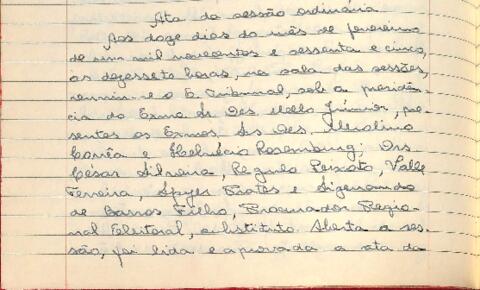 Ata da sessão ordinária
Aos doze dias do mês de fevereiro
de um mil novecentos e sessenta e cinco,
às dezessete horas, na sala das sessões,
reuniu-se o E. Tribunal, sob a presidên-
cia do Exmo Sr. Des. Mello Júnior, pre-
sentes os Exmos. Srs. Des. Merolino
Corrêa e Helvécio Rosemburg; Drs.
César Silveira, Régulo Peixoto, Valle
Ferreira, Spyer Prates e Sizenando
de Barros Filho, Procurador Regio-
nal Eleitoral, substituto. Aberta a ses-
são, foi lida e aprovada a ata da